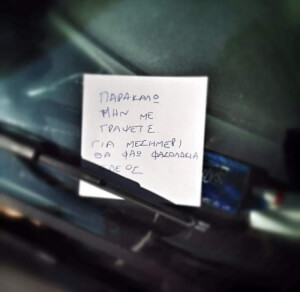 ΠΑΡΑΚΑΛΩ
ΜΗΝ ΜΕ
ΓΡΑΨΕΤΕ
ΓΙΑ ΜΕΣΗΜΕΡΙ
ΘΑ ΦΑΩ ΦΑΣΟΛΑΚΙΑ
ΕΛΕΟΣ